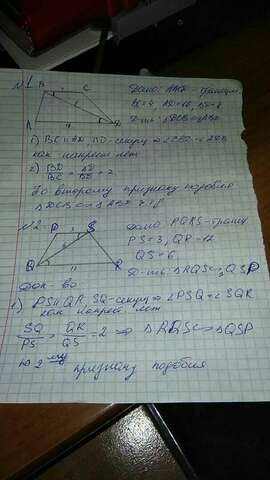 №1
B C
A D
Дано: ABCD - трапец.
BC=4, AD=16, BD=8
Д-ть: △DCB∽△ABD
1) BC॥AD, BD-секущ ⇒ ∠CBD=∠ADB
как накрест леж
2) BD/BC = AD/BD = 2
По второму признаку подобия
△DCB∽△ABD ЧТД
№2
P S
Q R
Дано: PQRS-трапец
PS=3, QR=12
QS=6
Д-ть: △RQS∽△QSP
Док-во
1) PS॥QR, SQ-секущ ⇒ ∠PSQ=∠SQR
как накрест леж
SQ/PS = QR/QS = 2 ⇒ △RQS∽△QSP
по 2 му признаку подобия